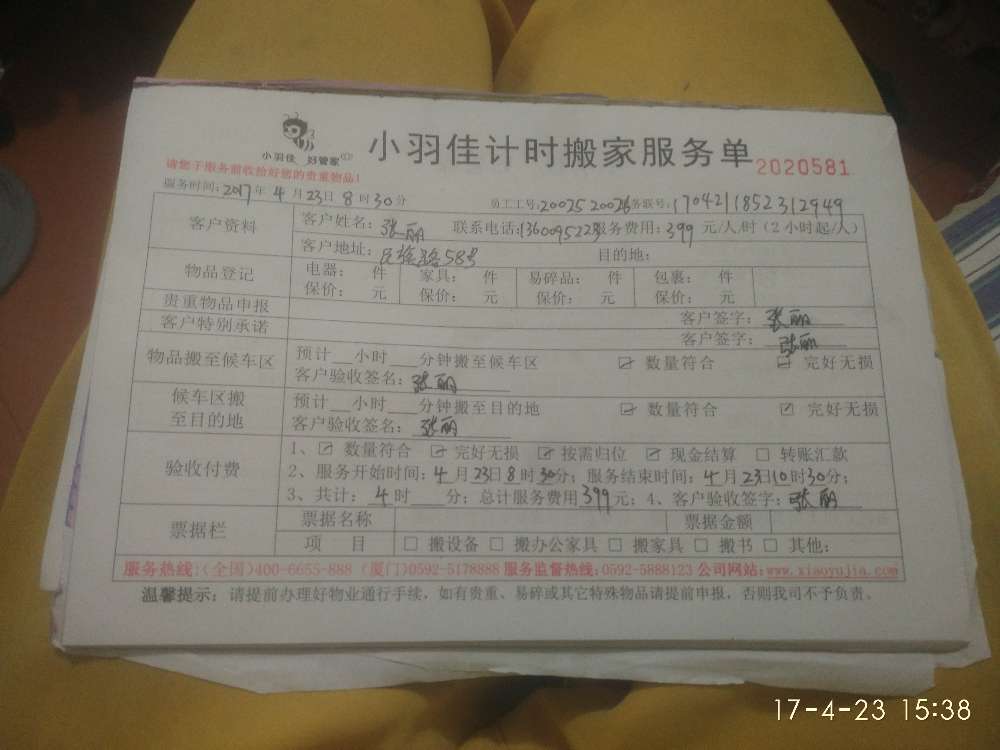 小羽佳 好管家
小羽佳计时搬家服务单 2020581
请您于服务前收拾好您的贵重物品！
服务时间：2017年4月23日8时30分 员工工号：20025 20026 务联号：170421185231​2949
客户资料 客户姓名：张丽 联系电话：1360095223 服务费用：399元/人/时（2小时起/人）
客户地址： 58号 目的地：
物品登记 电器： 件 家具： 件 易碎品： 件 包裹： 件
保价： 元 保价： 元 保价： 元 保价： 元
贵重物品申报 客户签字：张丽
客户特别承诺 客户签字：张丽
物品搬至候车区 预计__小时___分钟搬至候车区 ☑ 数量符合 ☑ 完好无损
客户验收签名：张丽
候车区搬至目的地 预计__小时___分钟搬至目的地 ☑ 数量符合 ☑ 完好无损
客户验收签名：张丽
验收付费 1、☑ 数量符合 ☑ 完好无损 ☑ 按需归位 ☑ 现金结算 □ 转账汇款
2、服务开始时间：4月23日8时30分；服务结束时间：4月23日10时30分；
3、共计：4时___分；总计服务费用399元；4、客户验收签字：张丽
票据栏 票据名称 票据金额
项 目 □ 搬设备 □ 搬办公家具 □ 搬家具 □ 搬书 □ 其他：
服务热线：（全国）400-6655-888（厦门）0592-5178888 服务监督热线：0592-5888123 公司网站：www.xiaoyujia.com
温馨提示：请提前办理好物业通行手续，如有贵重、易碎或其它特殊物品请提前申报，否则我司不予负责。
17-4-23 15:38